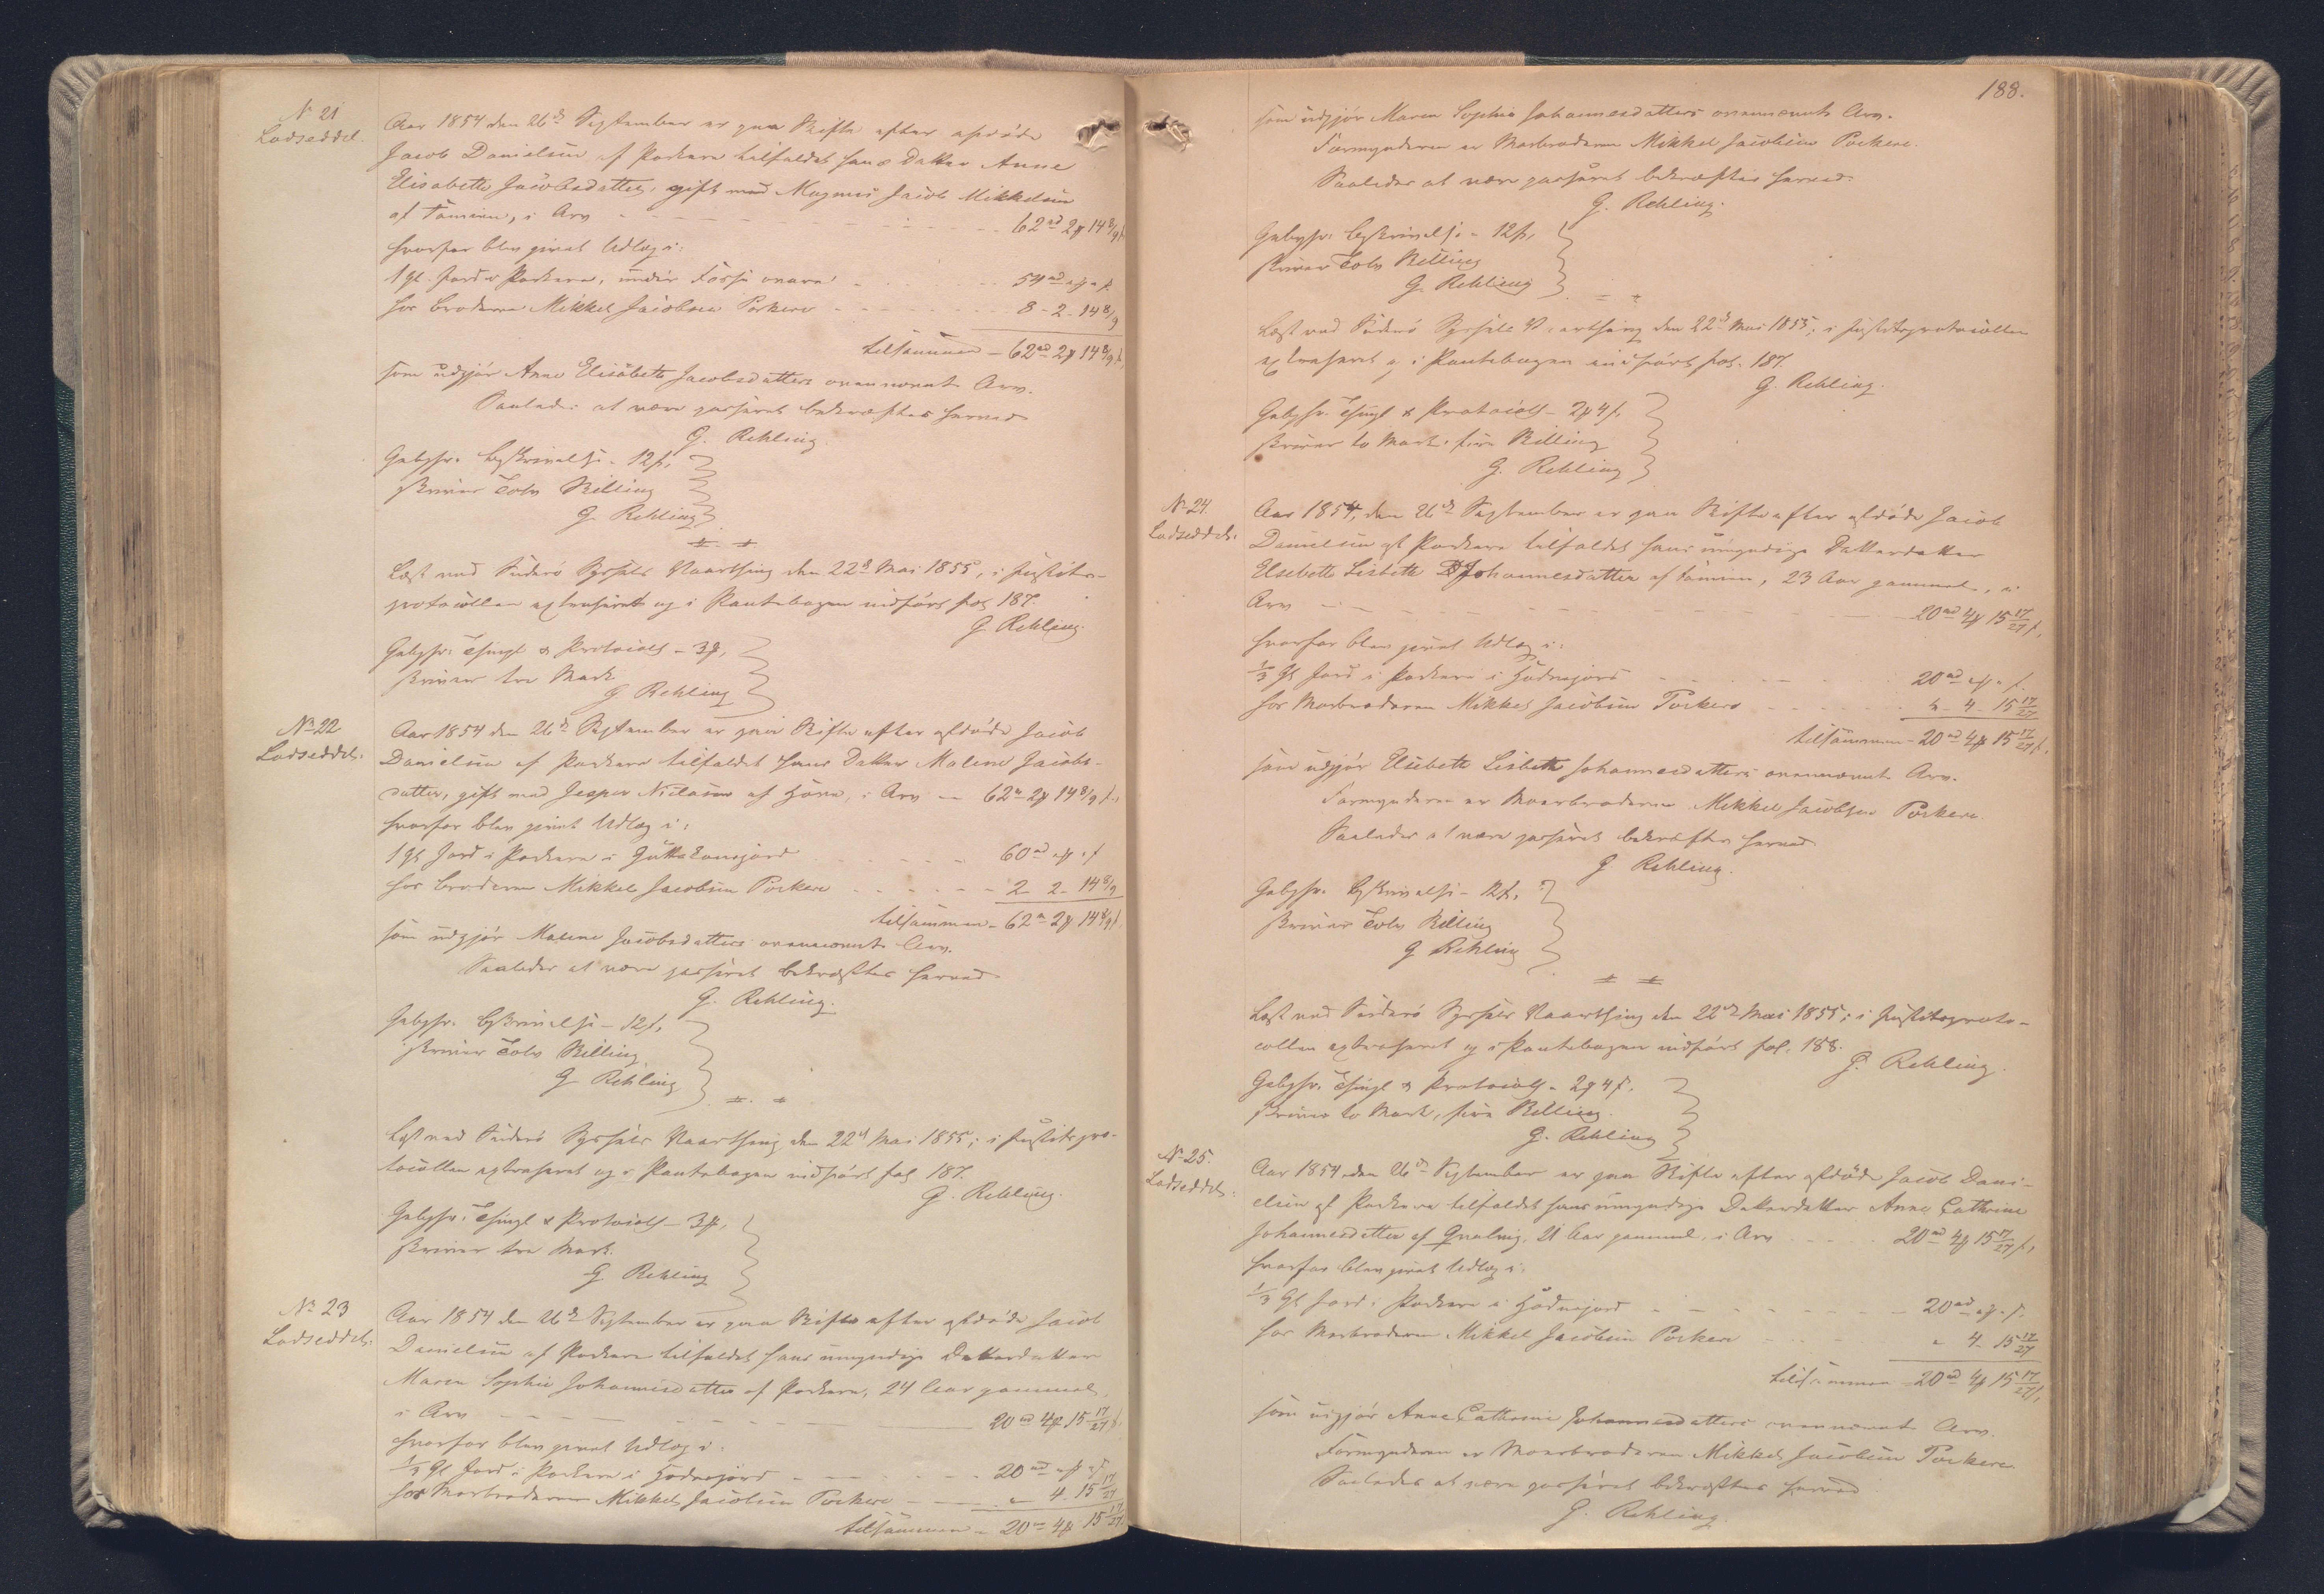 N 21
Lodseddel.
Aar 1854 den 26de September er paa Skifte efter afdøde
Jacob Danielsen af Porkere tilfaldet hans Datter Anne
Elisabeth Jacobsdatter, gift med Magnus Jacob Mikkelsen
af Famien, i Arv - - - 62rd 2# 14 8/9 s.
hvorfor blev givet Udlæg i:
1 Gl. Jord i Porkere, under - - - 54rd " # " s.
hos Broderen Mikkel Jacobsen Porkere - - - 8 - 2 - 14 8/9
tilsammen - 62rd 2# 14 8/9 s.
som udgjør Anne Elisabeth Jacobsdatters ovennævnte Arv.
Saaledes at være passeret bekræftes herved
G. Rehling.
Gebyhr: Beskrivelse - 12 s.
skriver Tolv Skilling
G. Rehling
Læst ved Suderø Syssels Vaarthing den 22d Mai 1855, i Justits-
protocollen extraheret og i Pantebogen indført fol 187.
G. Rehling.
Gebyhr: Thingl & Protocoll - 3#,
skriver tre Mark
G. Rehling
No 22
Lodseddel.
Aar 1854 den 26de September er paa Skifte efter afdøde Jacob
Danielsen af Porkere tilfaldet hans Datter Malene Jacobs-
datter, gift med Jesper Niclasen af Hove, i Arv - 62rd 2# 14 8/9 s.,
hvorfor blev givet Udlæg i:
1 Gl Jord i Porkere i - - - 60rd " # " s
hos Broderen Mikkel Jacobsen Porkere - - - 2 - 2 - 14 8/9
tilsammen - 62rd 2# 14 8/9 s.
som udgjør Malene Jacobsdatters ovennævnte Arv.
Saaledes at være passeret bekræftes herved
G. Rehling.
Gebyhr: Beskrivelse - 12 s,
skriver Tolv Skilling
G Rehling
Læst ved Suderø Syssels Vaarthing den 22d Mai 1855; i Justitspro-
tocollen extraheret og i Pantebogen indført fol 187.
G. Rehling.
Gebyhr: Thingl & Protocoll - 3#.
skriver tre Mark.
G Rehling
No 23
Lodseddel.
Aar 1854 den 26de September er paa Skifte efter afdøde Jacob
Danielsen af Porkere tilfaldet hans umyndige Datterdatter
Maren Sophie Johannesdatter af Porkere, 24 Aar gammel,
i Arv - - - 20rd 4# 15 17/27 s.
hvorfor blev givet Udlæg i:
1/3 Gl Jord i Porkere i Hødnejord - - - 20rd " # " s
hos Morbroderen Mikkel Jacobsen Porkere - - - " 4 - 15 17/27
tilsammen - 20rd 4# 15 17/27
188.
som udgjør Maren Sophie Johannesdatters ovennævnte Arv.
Formynderen er Morbroderen Mikkel Jacobsen Porkere.
Saaledes at være passeret bekræftes herved.
G. Rehling.
Gebyhr: Beskrivelse - 12 s,
skriver Tolv Skilling
G. Rehling
Læst ved Suderø Syssels Vaarthing den 22d Mai 1855; i Justitsprotocollen
extraheret og i Pantebogen indført fol. 187.
G. Rehling.
Gebyhr. Thingl & Protocoll - 2# 4 s.
skriver to Mark fire Skilling
G. Rehling
No 24.
Lodseddel.
Aar 1854, den 26de September er paa Skifte efter afdøde Jacob
Danielsen af Porkere tilfaldet hans umyndige Datterdatter
Elsebeth Lisbeth Johannesdatter af Famien, 23 Aar gammel, i
Arv - - - 20rd 4# 15 17/27 s.
hvorfor blev givet Udlæg i:
1/3 Gl Jord i Porkere i Hødnejord - - - 20rd " # " s.
hos Morbroderen Mikkel Jacobsen Porkere - - - " - 4 - 15 17/27
tilsammen - 20rd 4# 15 17/27 s.
som udgjør Elsebeth Lisbeth Johannesdatters ovennævnte Arv.
Formynderen er Morbroderen Mikkel Jacobsen Porkere.
Saaledes at være passeret bekræftes herved
G Rehling.
Gebyhr. Beskrivelse - 12 s.
skriver Tolv Skilling
G Rehling
Læst ved Suderø Syssels Vaarthing den 22de Mai 1855; i Justitsproto-
collen extraheret og i Pantebogen indført fol. 188.
G. Rehling.
Gebyhr. Thingl & Protocoll - 2# 4 s.
skriver to Mark, fire Skilling.
G. Rehling
No 25.
Lodseddel.
Aar 1854 den 26de September er paa Skifte efter afdøde Jacob Dani-
elsen af Porkere tilfaldet hans umyndige Datterdatter Anne Cathrine
Johannesdatter af Qvalvig, 21 Aar gammel, i Arv - - - 20rd 4# 15 17/27 s.,
hvorfor blev givet Udlæg i:
1/3 Gl Jord i Porkere i Hødnejord - - - 20rd " # " s.
hos Morbroderen Mikkel Jacobsen Porkere - - - " 4 - 15 17/27
tilsammen - 20rd 4# 15 17/27 s.
som udgjør Anne Cathrine Johannesdatters ovennævnte Arv.
Formynderen er Morbroderen Mikkel Jacobsen Porkere.
Saaledes at være passeret bekræftes herved
G. Rehling.